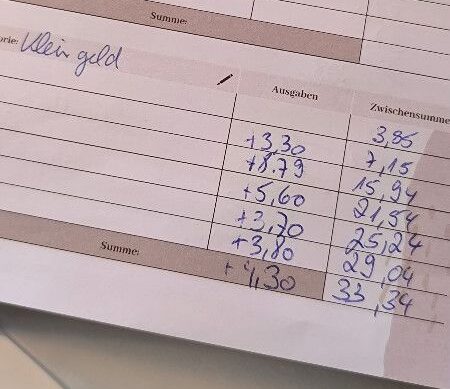 Summe:
orie: Kleingeld
Ausgaben Zwischensumme
3,85
+3,30 7,15
+8.79 15,94
+5,60 21,54
+3,70 25,24
+3,80 29,04
Summe: +4,30 33,34